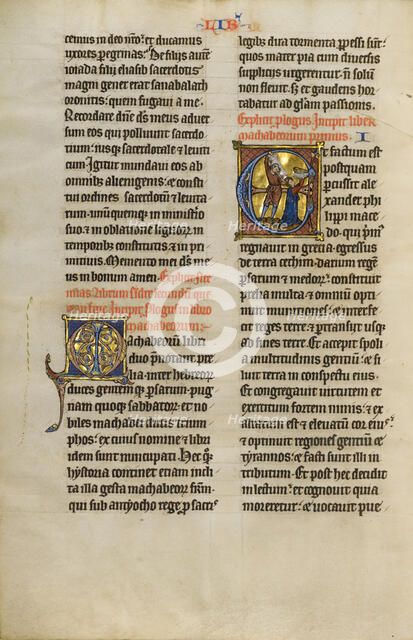 LIB
cemus in deo nr̄o: et ducamus
uxores peregrinas: De filijs autē
ioiada filij eliasib sacerdotis
magni gener erat sanabalach
oronitis: quem fugaui a me.
Recordare dn̄e d̄s meus aduer
sum eos qui polluunt sacerdo
tium: iusq; sacerdotale & leuiti
cum. Igitur mundaui eos ab
omnibꝫ alienigenis: & consti
tui ordines sacerdotū & leuita
rum. unūquemq; in ministerio
suo: & in oblatione lignoꝝ in
temporibꝫ constitutis & in pri
mitiuis. Memento mei d̄s me
us in bonum amen. Explicit
Incipit plogus in libro
machabeorum:
Machabeorum libri
duo p̄notant pre
lia inter hebreoꝝ
duces gentemq; ꝑsarum: pug
nam quoq; sabbatoꝝ: et no
biles machabei ducis trium
phos: ex cuius nomine & libri
idem sunt nuncupati. Hec q̄ꝫ
hystoria continet etiam incli
ta illa gesta machabeoꝝ fr̄m:
qui sub anthyocho rege ꝓ sacris
legibꝫ dira tormenta ꝑpessi sunt:
quos mater pia cum diuersis
supplicijs urgerentur: n̄ solum
non fleuit. sꝫ et gaudens hor
tabatur ad gl̄am passionis.
Explicit plogus Incipit liber
machabeorum primus. I
Et factum est
postquam
ꝑcussit ale
xander phi
lippi mace
do. qui p̄m⁹
regnauit in grecia: egressus
de terra cethim: darium regē
ꝑsarum & medoꝝ: constituit
prelia multa: & omniū opti
nuit munitiones: & interfe
cit reges terre: & ꝑtransijt us
q; ad fines terre. Et accepit spoli
a multitudinis gentiū: & si
luit terra in conspectu eius.
Et congregauit uirtutem et
exercitum fortem nimis: & ex
altatum est & eleuatū cor ei⁹:
& optinuit regiones gentiū &
tyrannos: & facti sunt illi in
tributum. Et post hec decidit
in lectum: et cognouit quia
moreretur: & uocauit pue